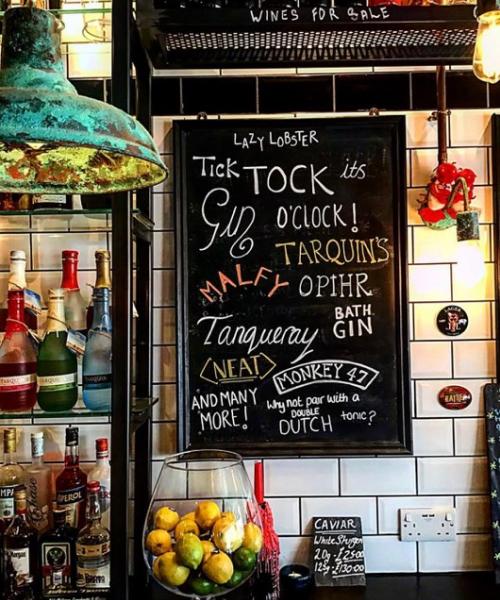 WINES FOR SALE
LAZY LOBSTER
Tick TOCK its
Gin O'CLOCK!
TARQUIN'S
MALFY OPIHR
Tanqueray BATH GIN
NEAT
MONKEY 47
AND MANY MORE!
Why not pair with a DOUBLE DUTCH tonic?
CAVIAR
White Sturgeon
20g £25.00
125g £130.00
APEROL